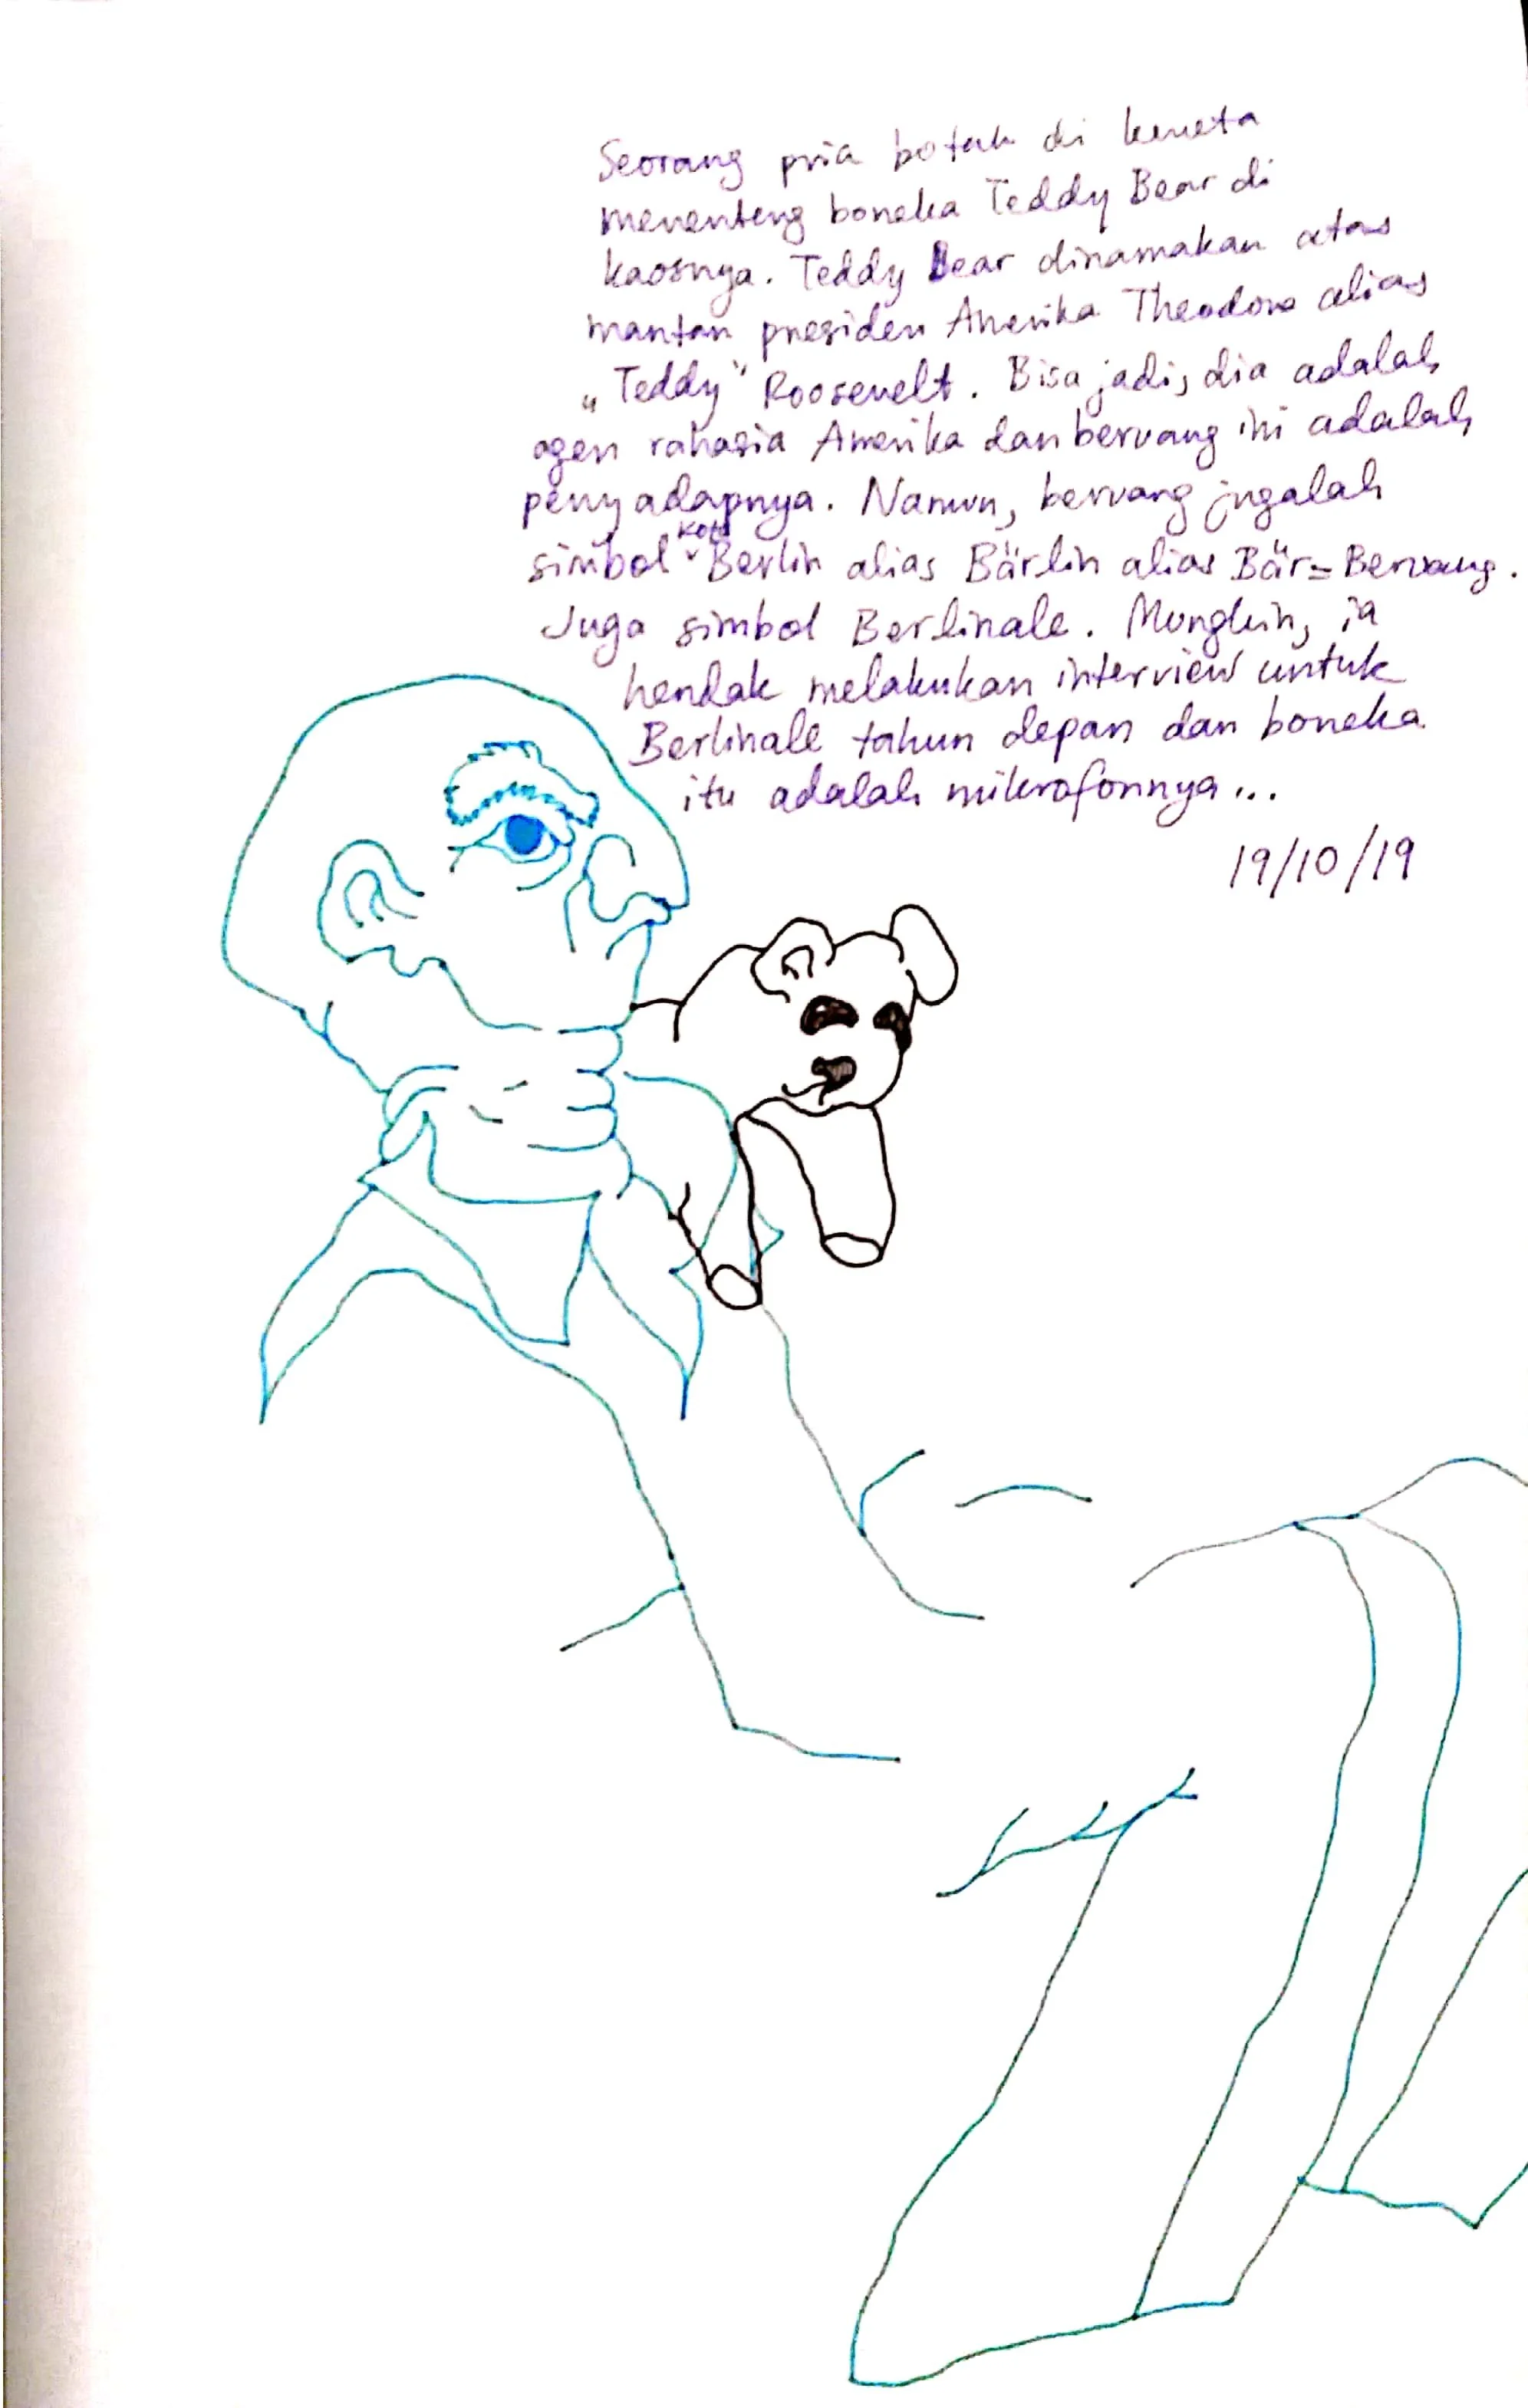 Seorang pria botak di kereta
menenteng boneka Teddy Bear di
kaosnya. Teddy Bear dinamakan atas
mantan presiden Amerika Theodore alias
„Teddy" Roosevelt. Bisa jadi, dia adalah
agen rahasia Amerika dan beruang ini adalah
penyadapnya. Namun, beruang jugalah
simbol Kota Berlin alias Bärlin alias Bär = Beruang.
Juga simbol Berlinale. Mungkin, ia
hendak melakukan interview untuk
Berlinale tahun depan dan boneka
itu adalah mikrofonnya...
19/10/19